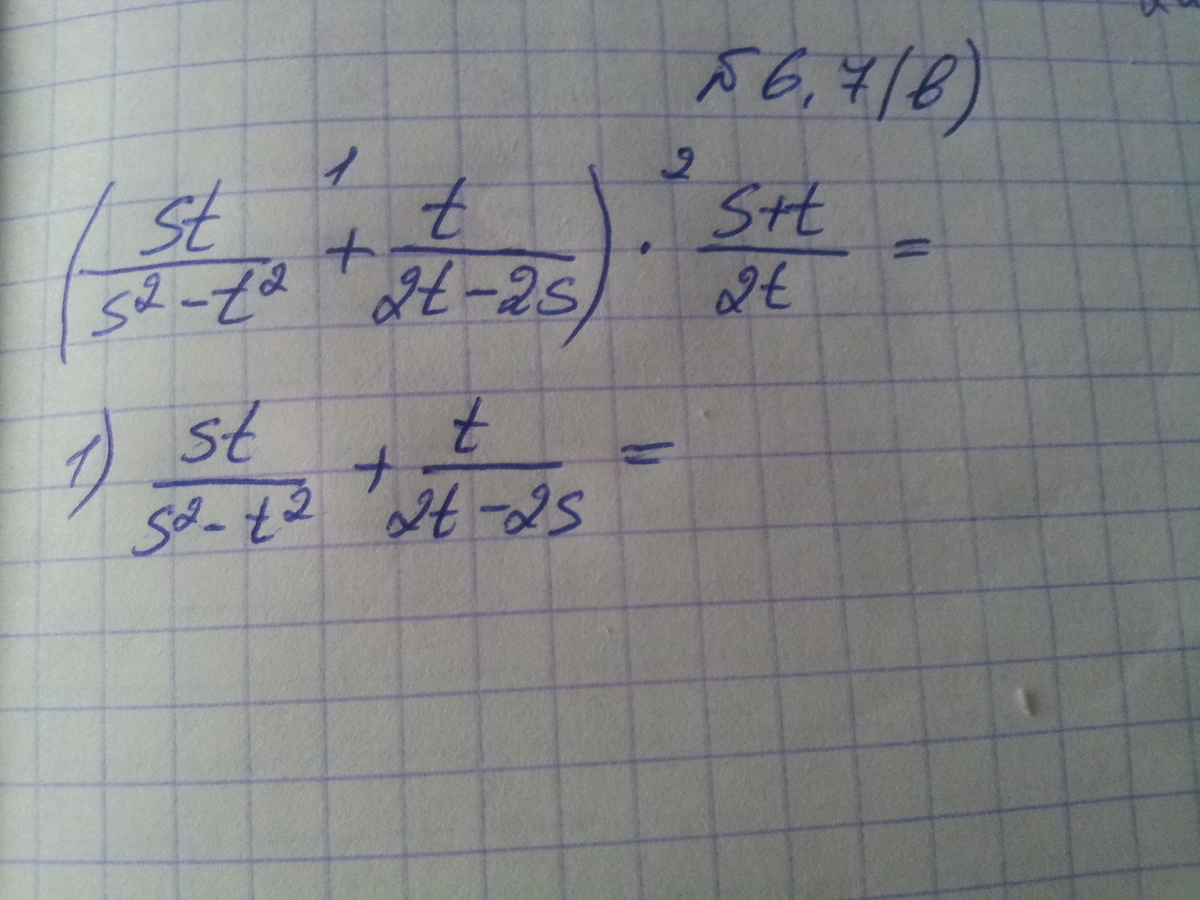 № 6.7(в)
(st/(s²-t²) +¹ t/(2t-2s)) ·² (s+t)/(2t) =
1) st/(s²-t²) + t/(2t-2s) =